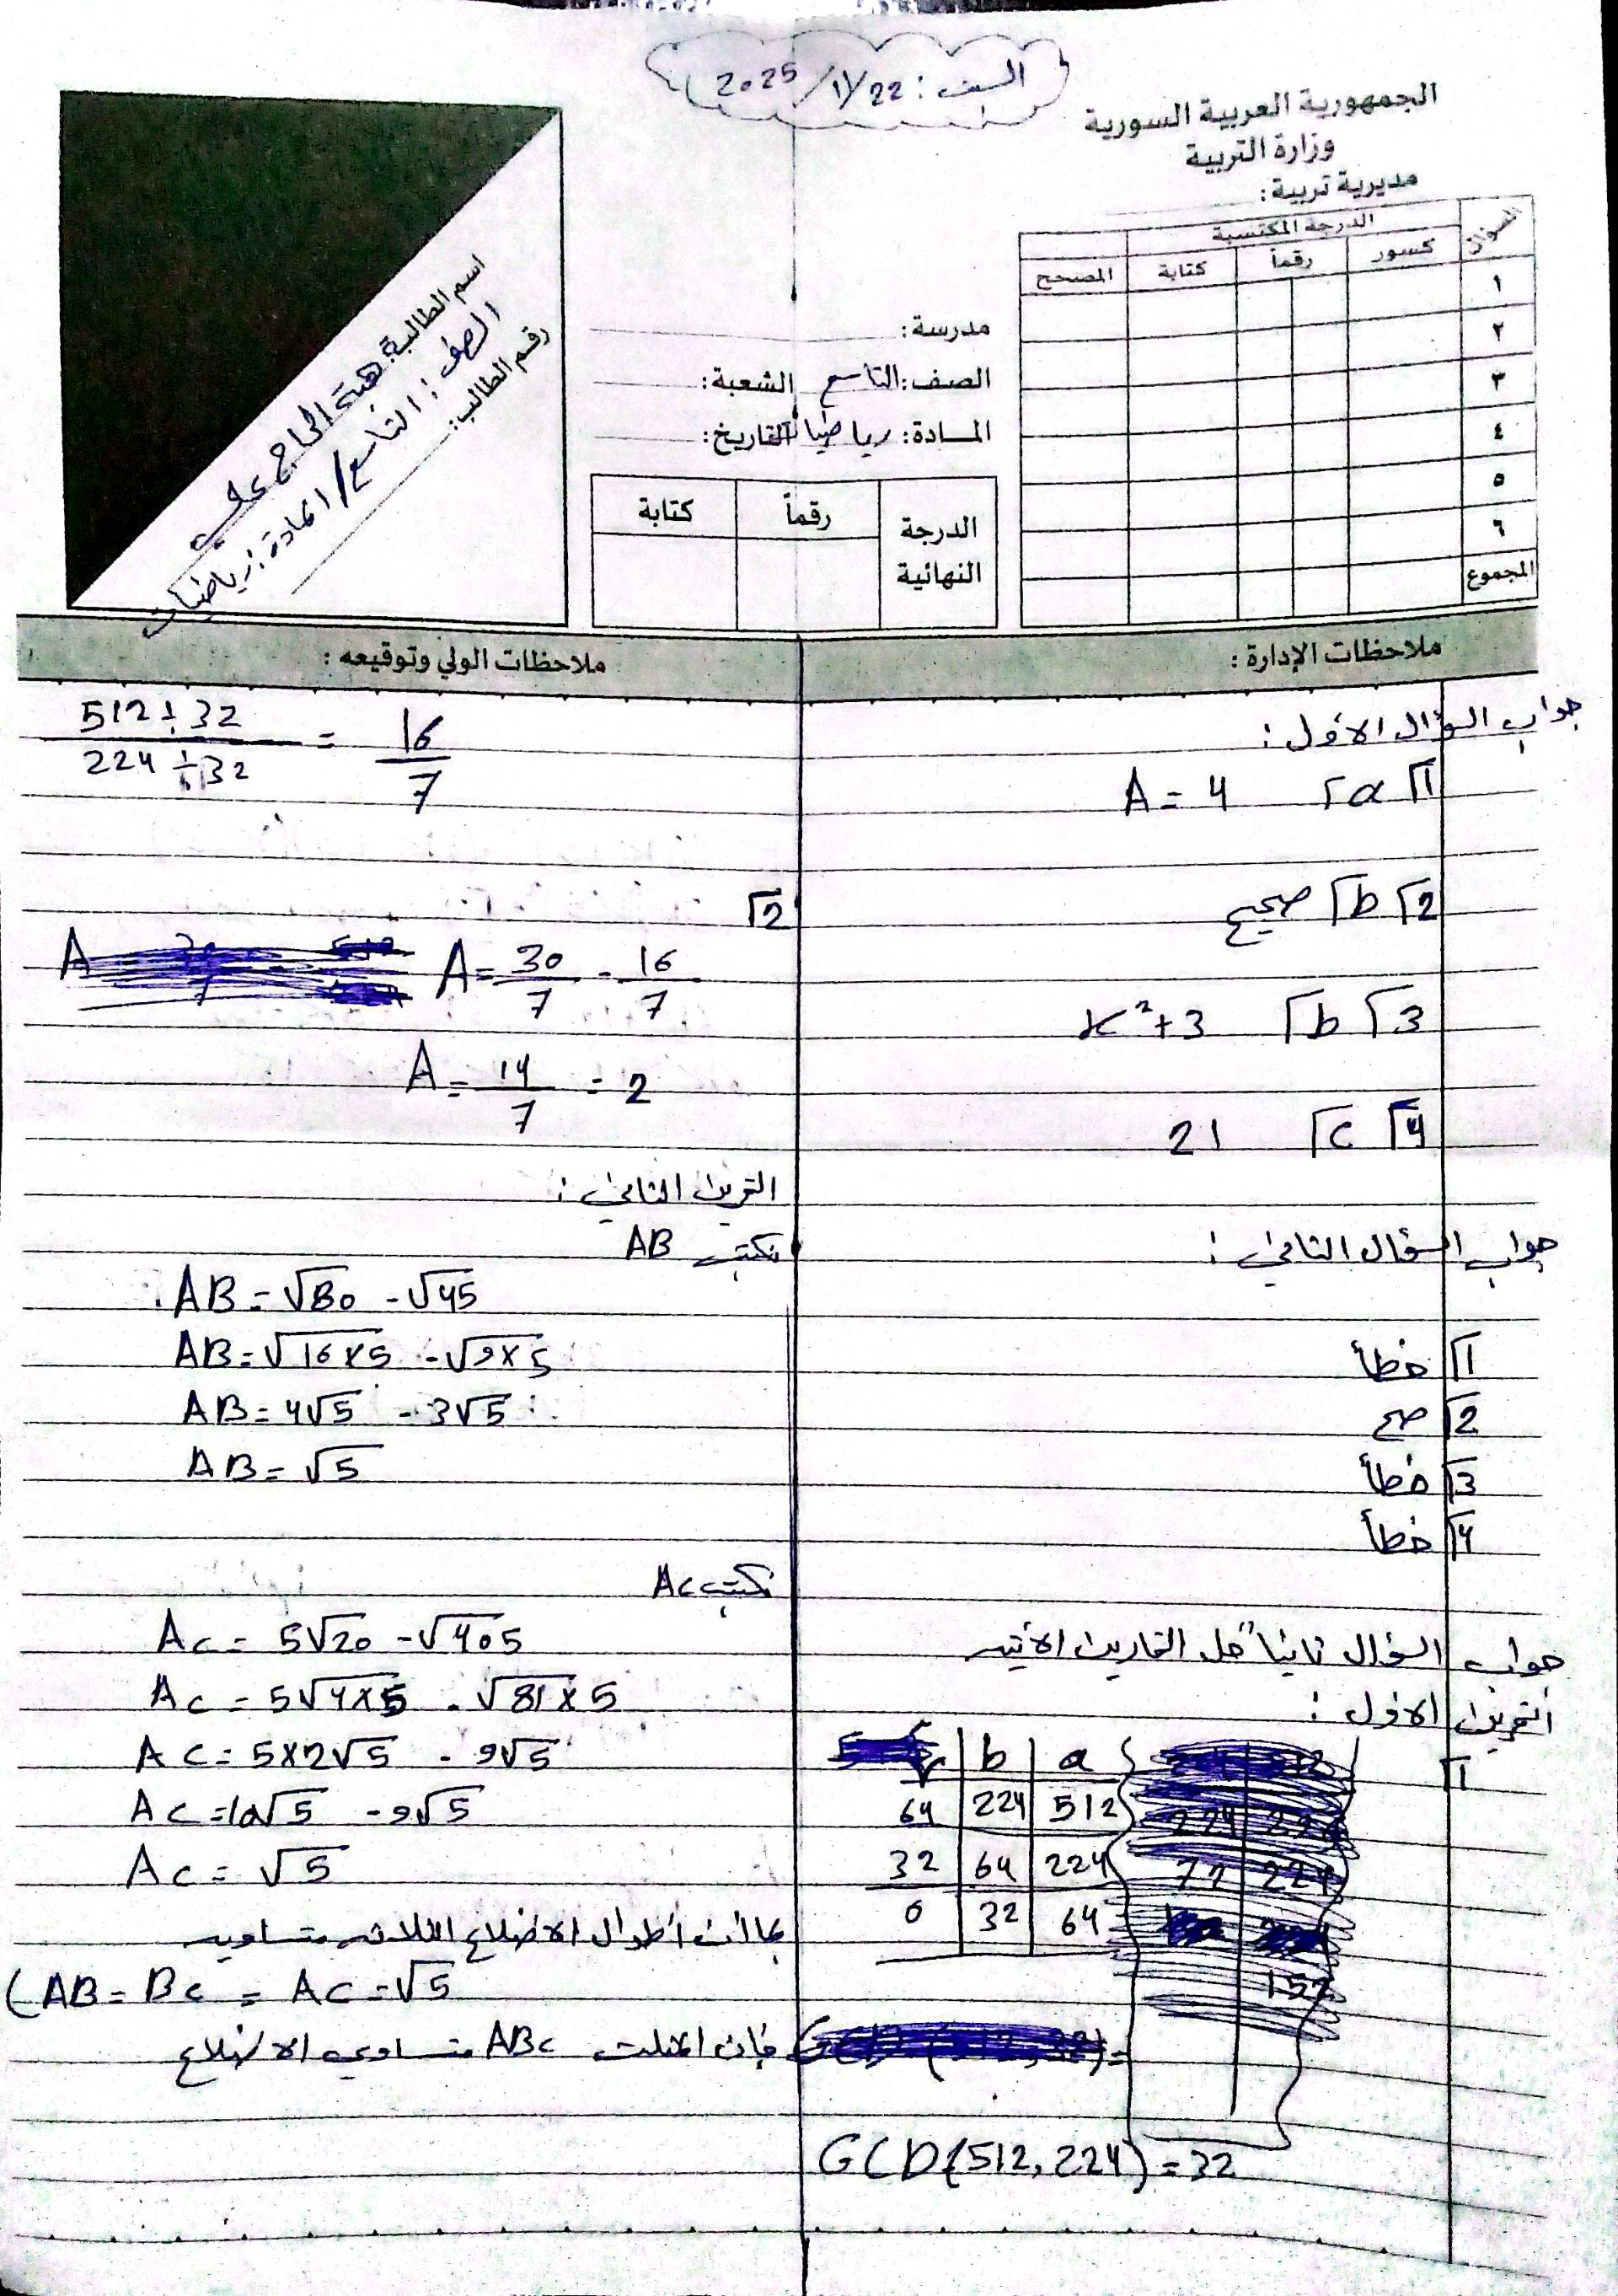 السبت : 22/1/2025
الجمهورية العربية السورية
وزارة التربية
مديرية تربية :
السؤال
الدرجة المكتسبة
كسور رقماً كتابة المصحح
١
٢
٣
٤
٥
٦
المجموع
مدرسة :
الصف : التاسع الشعبة :
المادة : رياضيات التاريخ :
الدرجة النهائية رقماً كتابة
اسم الطالب : هبة الحاج علي
الصف : التاسع / المادة : رياضيات
رقم الطالب :
ملاحظات الإدارة :
ملاحظات الولي وتوقيعه :
جواب السؤال الأول :
1 a A = 4
2 b صحيح
3 b x² + 3
4 c 21
جواب السؤال الثاني :
1 خطأ
2 صح
3 خطأ
4 خطأ
جواب السؤال ثانياً حل التمارين الأتيه
التمرين الاول :
1
a b r
512 224 64
224 64 32
64 32 0
GCD(512, 224) = 32
512 ÷ 32 / 224 ÷ 32 = 16/7
2
A = 30/7 - 16/7
A = 14/7 = 2
التمرين الثاني :
نكتب AB
AB = √80 - √45
AB = √16×5 - √9×5
AB = 4√5 - 3√5
AB = √5
نكتب AC
AC = 5√20 - √405
AC = 5√4×5 - √81×5
AC = 5×2√5 - 9√5
AC = 10√5 - 9√5
AC = √5
بما أن أطوال الاضلاع الثلاثه متساويه
(AB = BC = AC = √5
فإن المثلث ABC متساوي الاضلاع